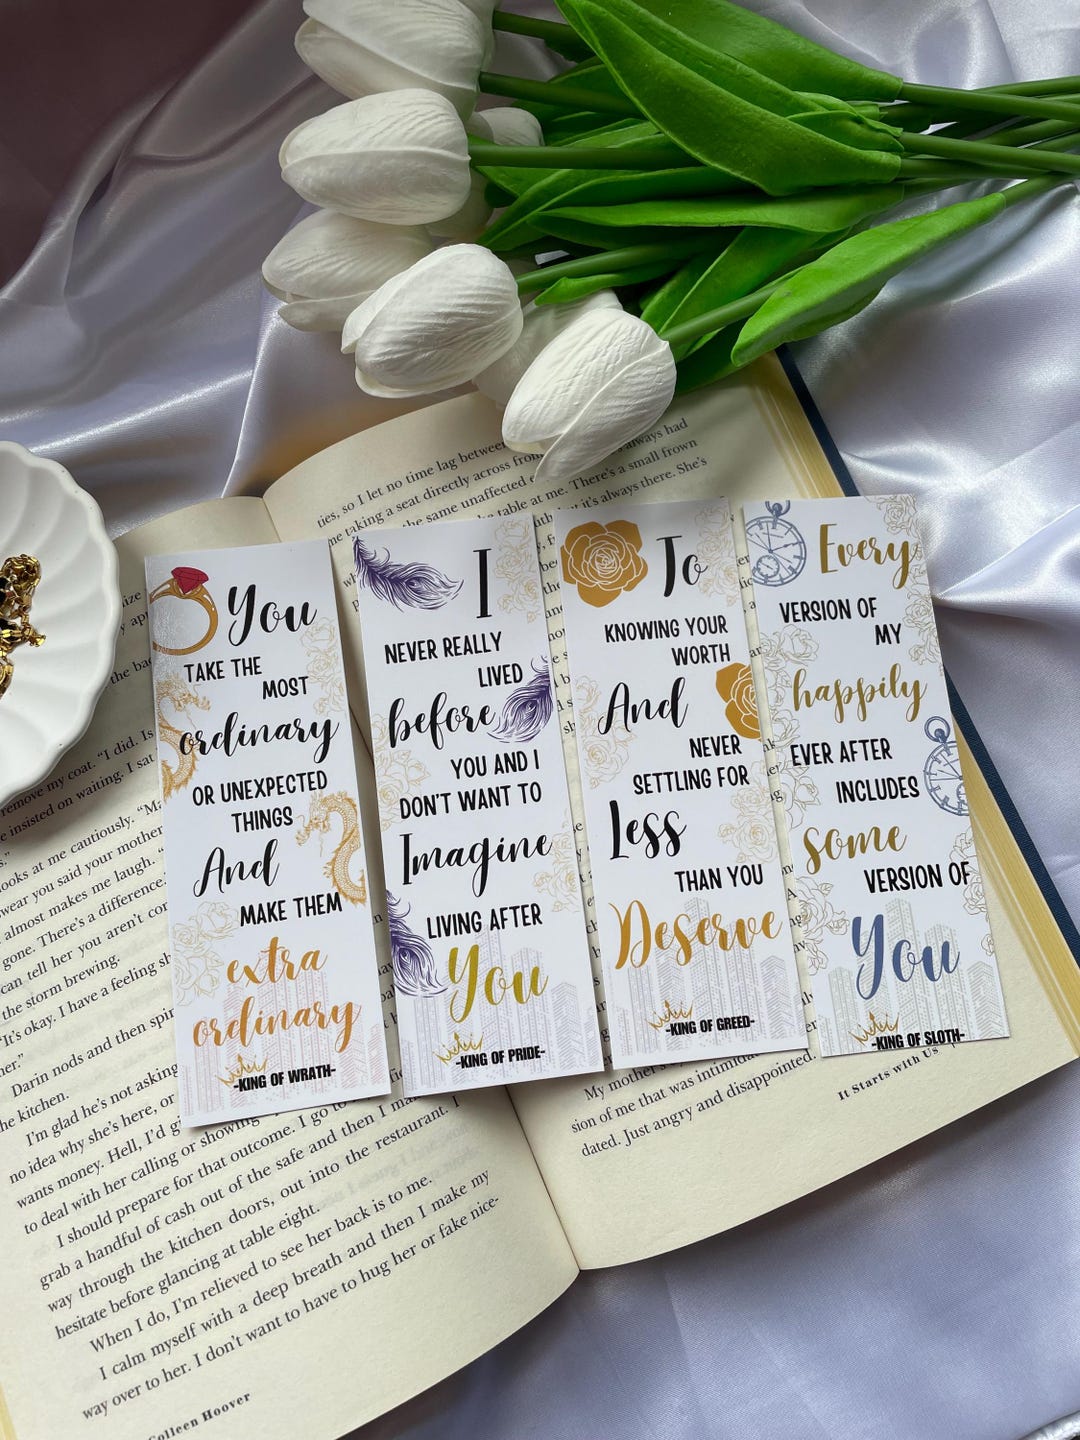 ties, so I let no time lag between
me taking a seat directly across from
the same unaffected
table at me. There's a small frown
but it's always there. She's
always had
You
TAKE THE
MOST
ordinary
OR UNEXPECTED
THINGS
And
MAKE THEM
extra
ordinary
-KING OF WRATH-
I
NEVER REALLY
LIVED
before
YOU AND I
DON'T WANT TO
Imagine
LIVING AFTER
You
-KING OF PRIDE-
To
KNOWING YOUR
WORTH
And
NEVER
SETTLING FOR
Less
THAN YOU
Deserve
-KING OF GREED-
Every
VERSION OF
MY
happily
EVER AFTER
INCLUDES
some
VERSION OF
You
-KING OF SLOTH-
remove my coat. "I did. Is
insisted on waiting. I sat
looks at me cautiously. "Ma
swear you said your mother
almost makes me laugh. "
gone. There's a difference.
can tell her you aren't cor
the storm brewing.
"It's okay. I have a feeling sh
her."
Darin nods and then spir
the kitchen.
I'm glad he's not asking
no idea why she's here, or
wants money. Hell, I'd g
to deal with her calling or showing
I should prepare for that outcome. I go to
grab a handful of cash out of the safe and then I ma
way through the kitchen doors, out into the restaurant. I
hesitate before glancing at table eight.
When I do, I'm relieved to see her back is to me.
I calm myself with a deep breath and then I make my
way over to her. I don't want to have to hug her or fake nice-
Colleen Hoover
My mother's
sion of me that was intimida
dated. Just angry and disappointed.
It Starts with Us